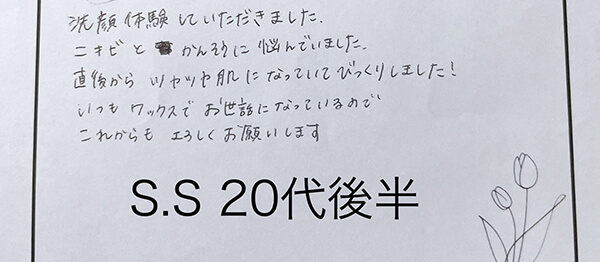 洗顔体験していただきました.
ニキビと かんそうに悩んでいました.
直後からツヤツヤ肌になっていてびっくりしました!
いつもワックスでお世話になっているので
これからもよろしくお願いします
S.S 20代後半